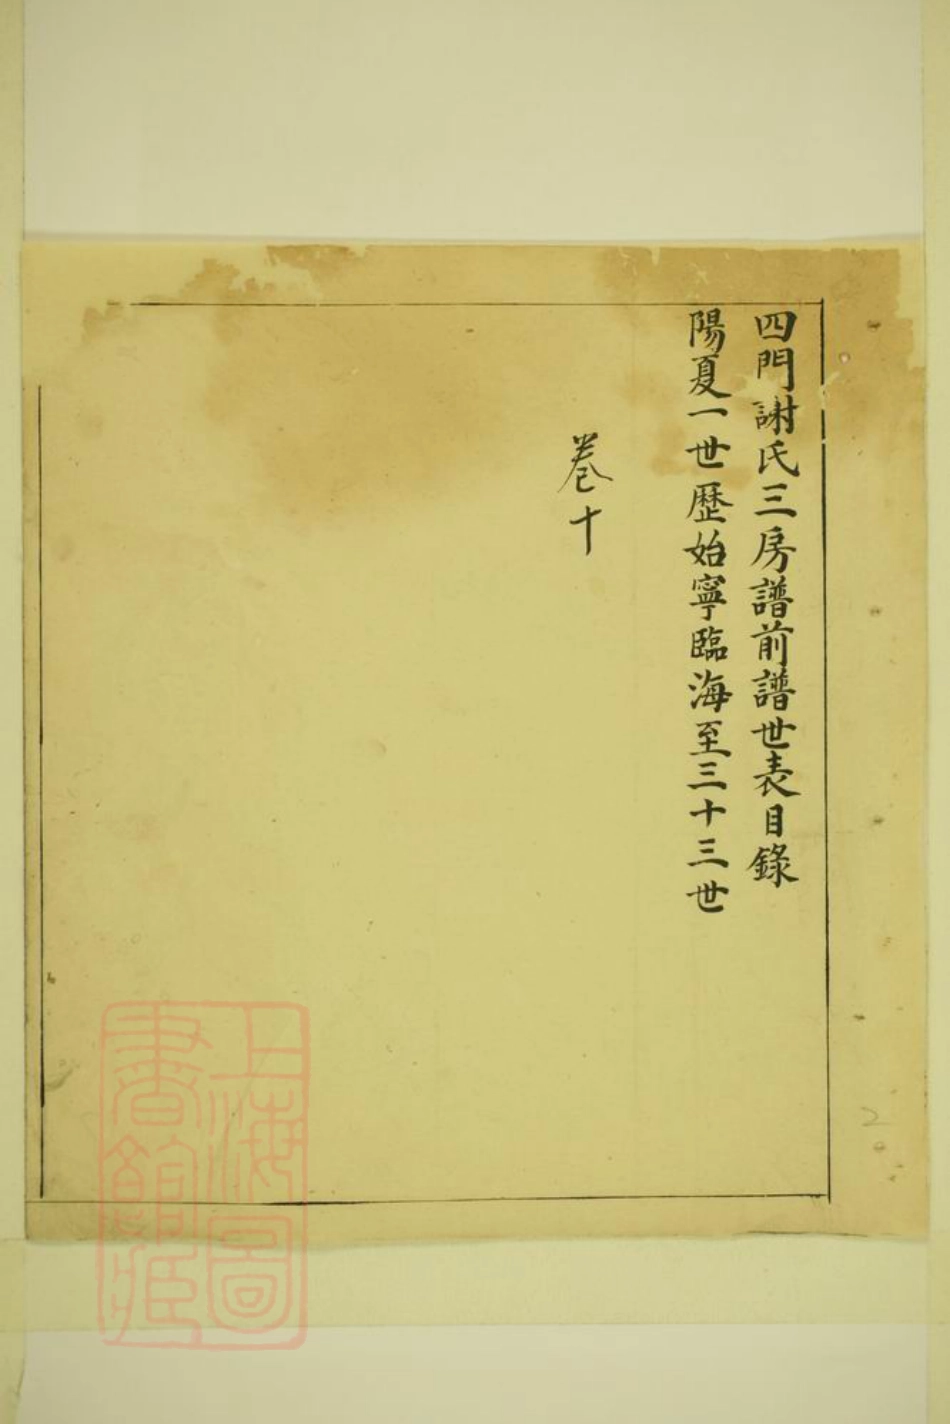 四門謝氏三房譜前譜世表目錄
陽夏一世歷始寧臨海至三十三世
卷十
2
上海圖書館藏